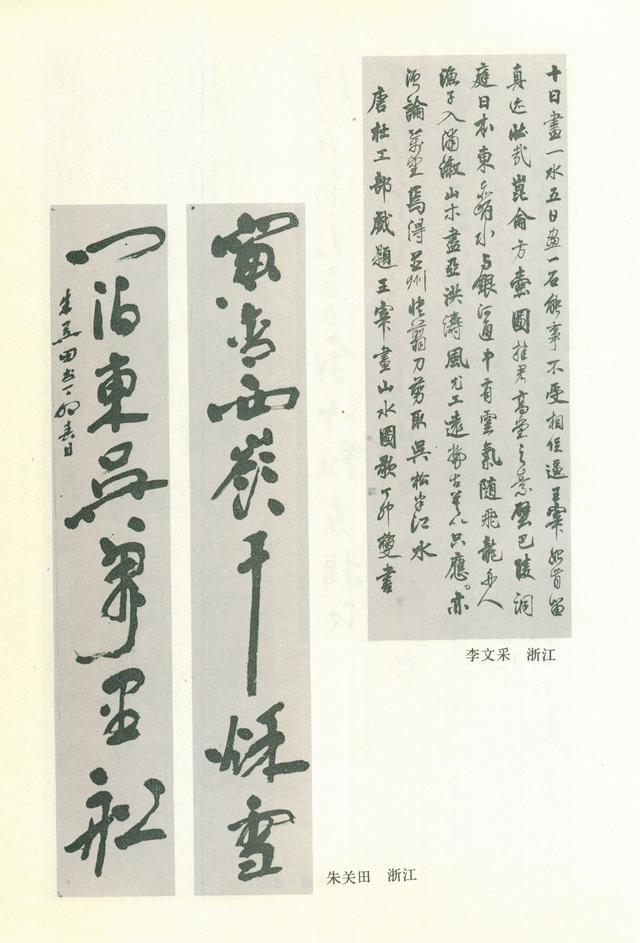 十日畫一水五日畫一石能事不受相促逼王宰始肯留
真迹壯哉崑侖方壺圖挂君高堂之素壁巴陵洞
庭日本東赤岸水与銀河通中有雲氣随飛龍舟人
漁子入浦溆山木盡亞洪濤風尤工遠勢古莫比只應亦
須論萬里焉得并州快翦刀剪取吳松半江水
唐杜工部戲題王宰畫山水圖歌丁卯雙書
李文采 浙江
窗含西嶺千秌雪
門泊東吳萬里船
朱関田书丁卯春日
朱关田 浙江